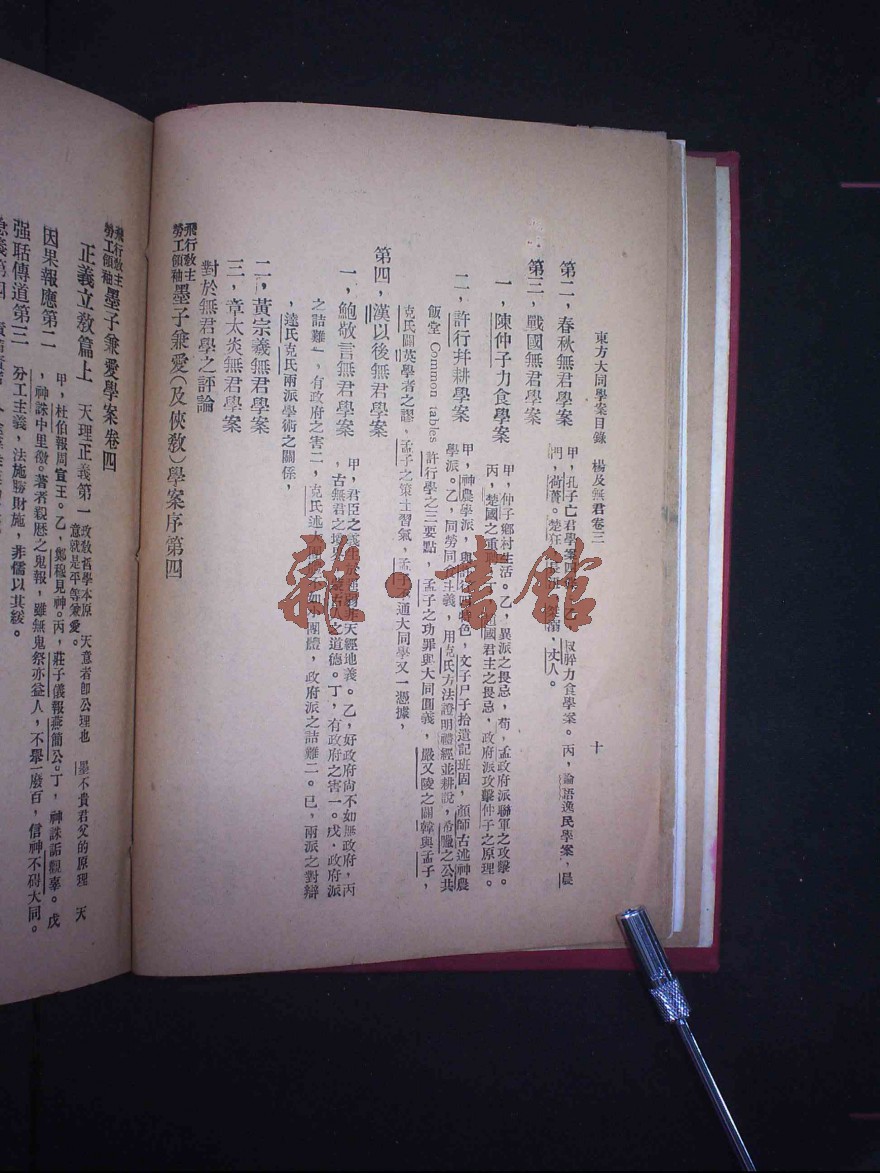 東方大同學案目錄 楊及無君卷三 十
第二，春秋無君學案
甲，孔子亡君學案
力食學案。丙，論語逸民學案，晨
門，荷蕢。楚狂
丈人。
第三，戰國無君學案
一，陳仲子力食學案
甲，仲子鄉村生活。乙，異派之畏忌，荀，孟政府派聯軍之攻擊。
丙，楚國之重
國君主之畏忌，政府派攻擊仲子之原理。
二，許行并耕學案
甲，神農學派，與許行四特色，文子尸子拾遺記班固，顏師古述神農
學派。乙，同勞同
主義，用克氏方法證明禮經並耕說，希臘之公共
飯堂 Common tables 許行學之三要點，孟子之功罪與大同圓義，嚴又陵之闢韓與孟子，
克氏闢英學者之謬，孟子之策士習氣，孟子不通大同學又一憑據，
第四，漢以後無君學案
一，鮑敬言無君學案
甲，君臣之義
非天經地義。乙，好政府尙不如無政府，丙
，古無君之
之道德。丁，有政府之害一。戊，政府派
之詰難一，有政府之害二，克氏述大
不如小團體，政府派之詰難二。已，兩派之對辯
，達氏克氏兩派學術之關係，
二，黃宗羲無君學案
三，章太炎無君學案
對於無君學之評論
飛行教主
勞工領袖墨子兼愛（及俠教）學案序第四
飛行教主
勞工領袖墨子兼愛學案卷四
正義立教篇上 天理正義第一
政教哲學本原 天意者卽公理也 墨不貴君父的原理 天
意就是平等兼愛。
因果報應第二
甲，杜伯報周宣王。乙，鄭穆見神。丙，莊子儀報燕簡公。丁，神誅䛗觀辜。戊
，神誅中里徼。著者親歷之鬼報，雖無鬼祭亦益人，不舉一廢百，信神不碍大同。
强聒傳道第三
分工主義，法施勝財施，非儒以其緩。